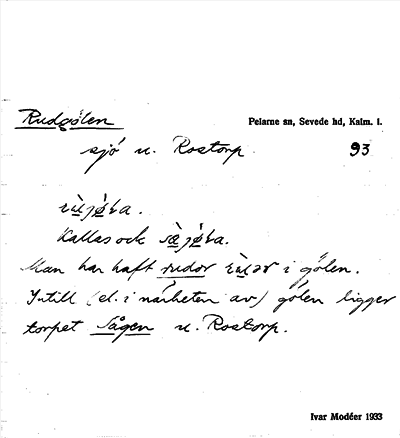 Rudgölen
Pelarne sn, Sevede hd, Kalm. l.
sjö u. Rostorp.
93
Kallas ock
Man har haft rudor i gölen.
Intill (el. i närheten av) gölen ligger
torpet Sågen u. Rostorp.
Ivar Modéer 1933